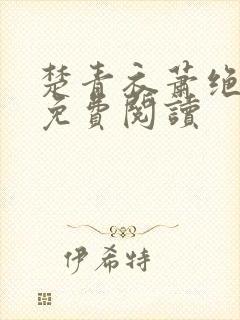 楚青衣萧绝
免費閱讀
伊希特